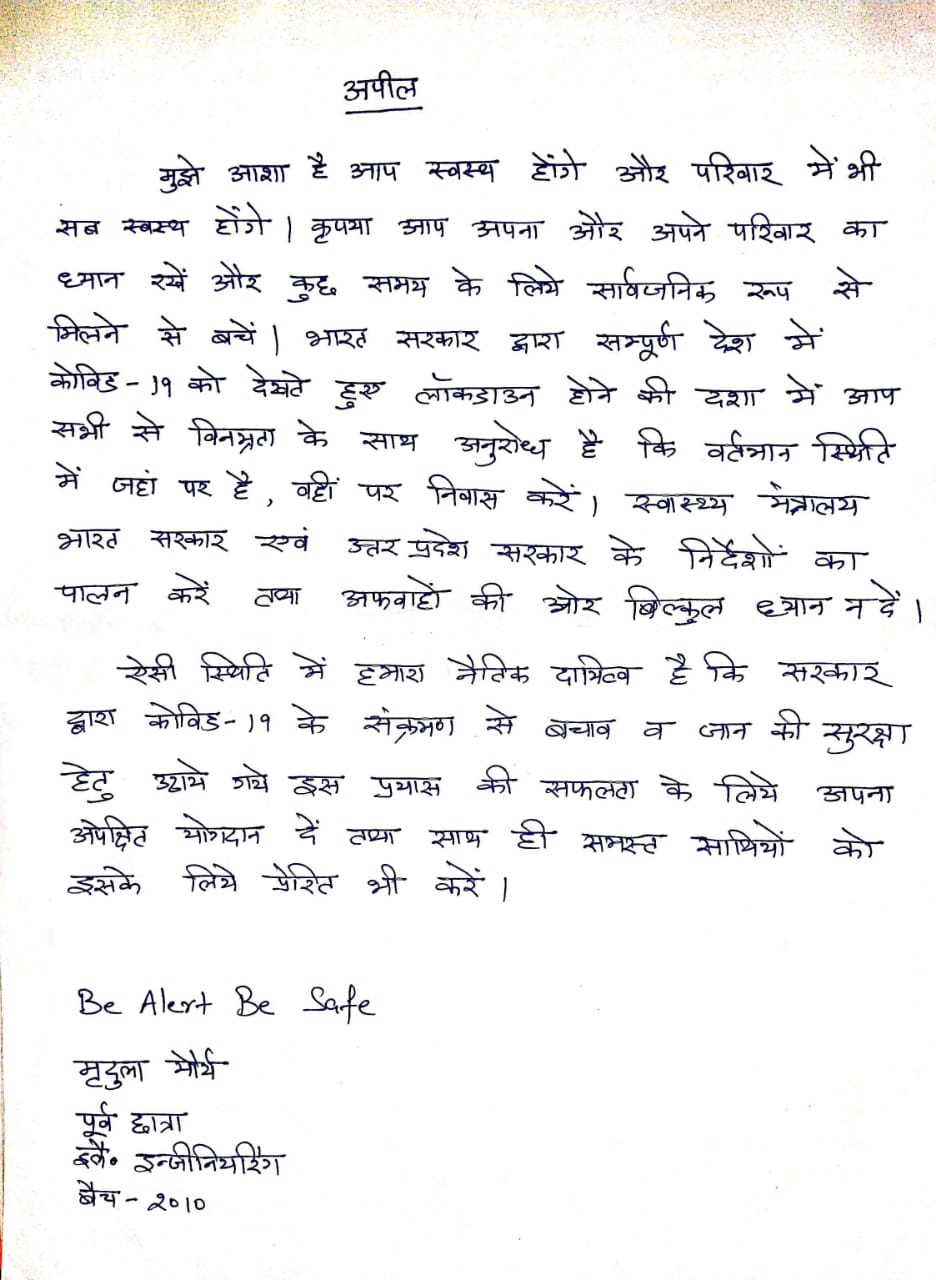 अपील
मुझे आशा है आप स्वस्थ होंगे और परिवार में भी
सब स्वस्थ होंगे । कृपया आप अपना और अपने परिवार का
ध्यान रखें और कुछ समय के लिये सार्वजनिक रूप से
मिलने से बचें । भारत सरकार द्वारा सम्पूर्ण देश में
कोविड - १९ को देखते हुए लॉकडाउन होने की दशा में आप
सभी से विनम्रता के साथ अनुरोध है कि वर्तमान स्थिति
में जहां पर है , वहीं पर निवास करें । स्वास्थ्य मंत्रालय
भारत सरकार एवं उत्तर प्रदेश सरकार के निर्देशों का
पालन करें तथा अफवाहों की ओर बिल्कुल ध्यान न दें ।
ऐसी स्थिति में हमारा नैतिक दायित्व है कि सरकार
द्वारा कोविड - १९ के संक्रमण से बचाव व जान की सुरक्षा
हेतु उठाये गये इस प्रयास की सफलता के लिये अपना
अपेक्षित योगदान दें तथा साथ ही समस्त साथियों को
इसके लिये प्रेरित भी करें ।
Be Alert Be Safe
मृदुला मौर्य
पूर्व छात्रा
इलै० इन्जीनियरिंग
बैच - २०१०